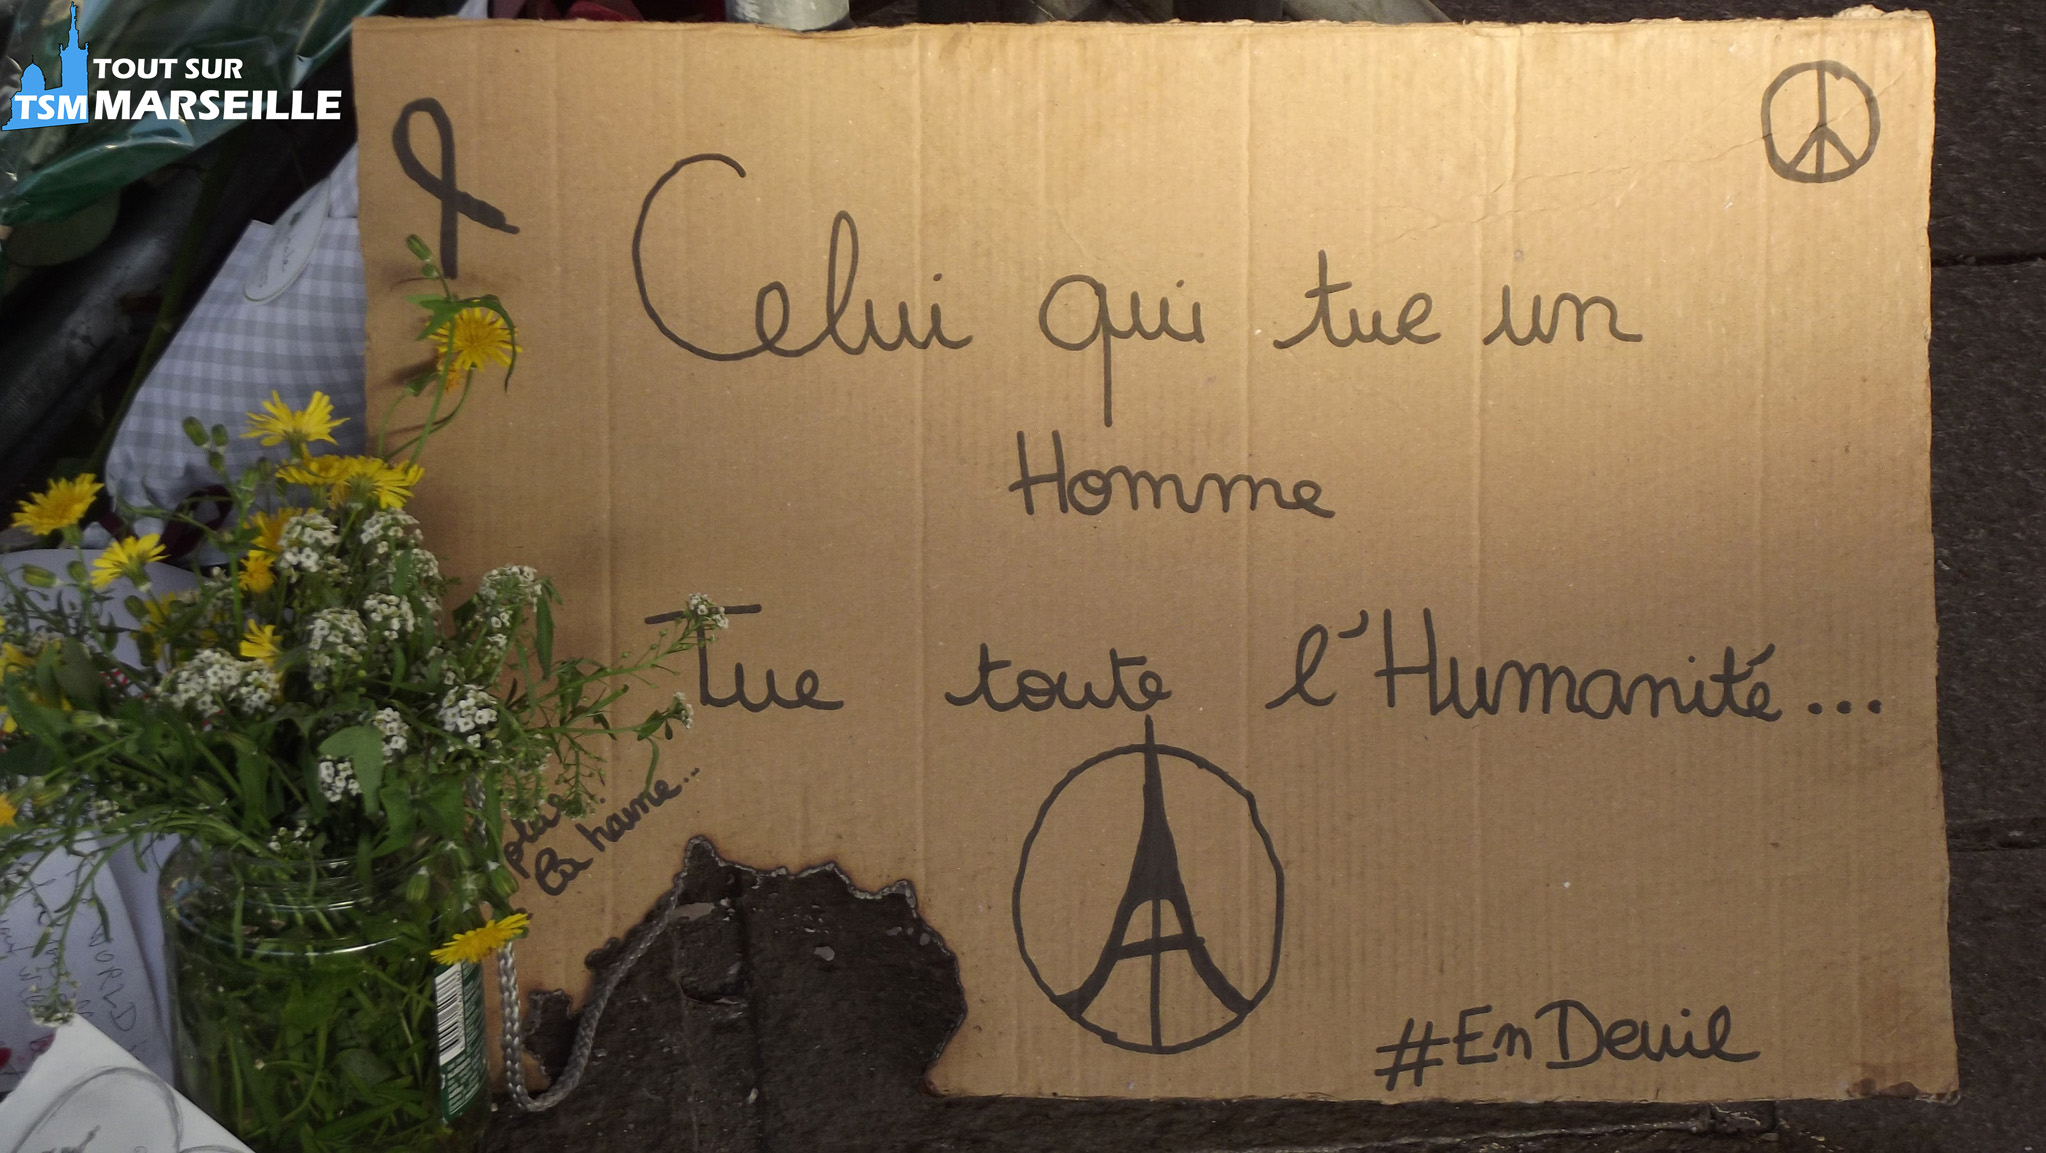 TOUT SUR
TSM MARSEILLE
Celui qui tue un
Homme
Tue toute l'Humanité...
la haine...
#EnDeuil